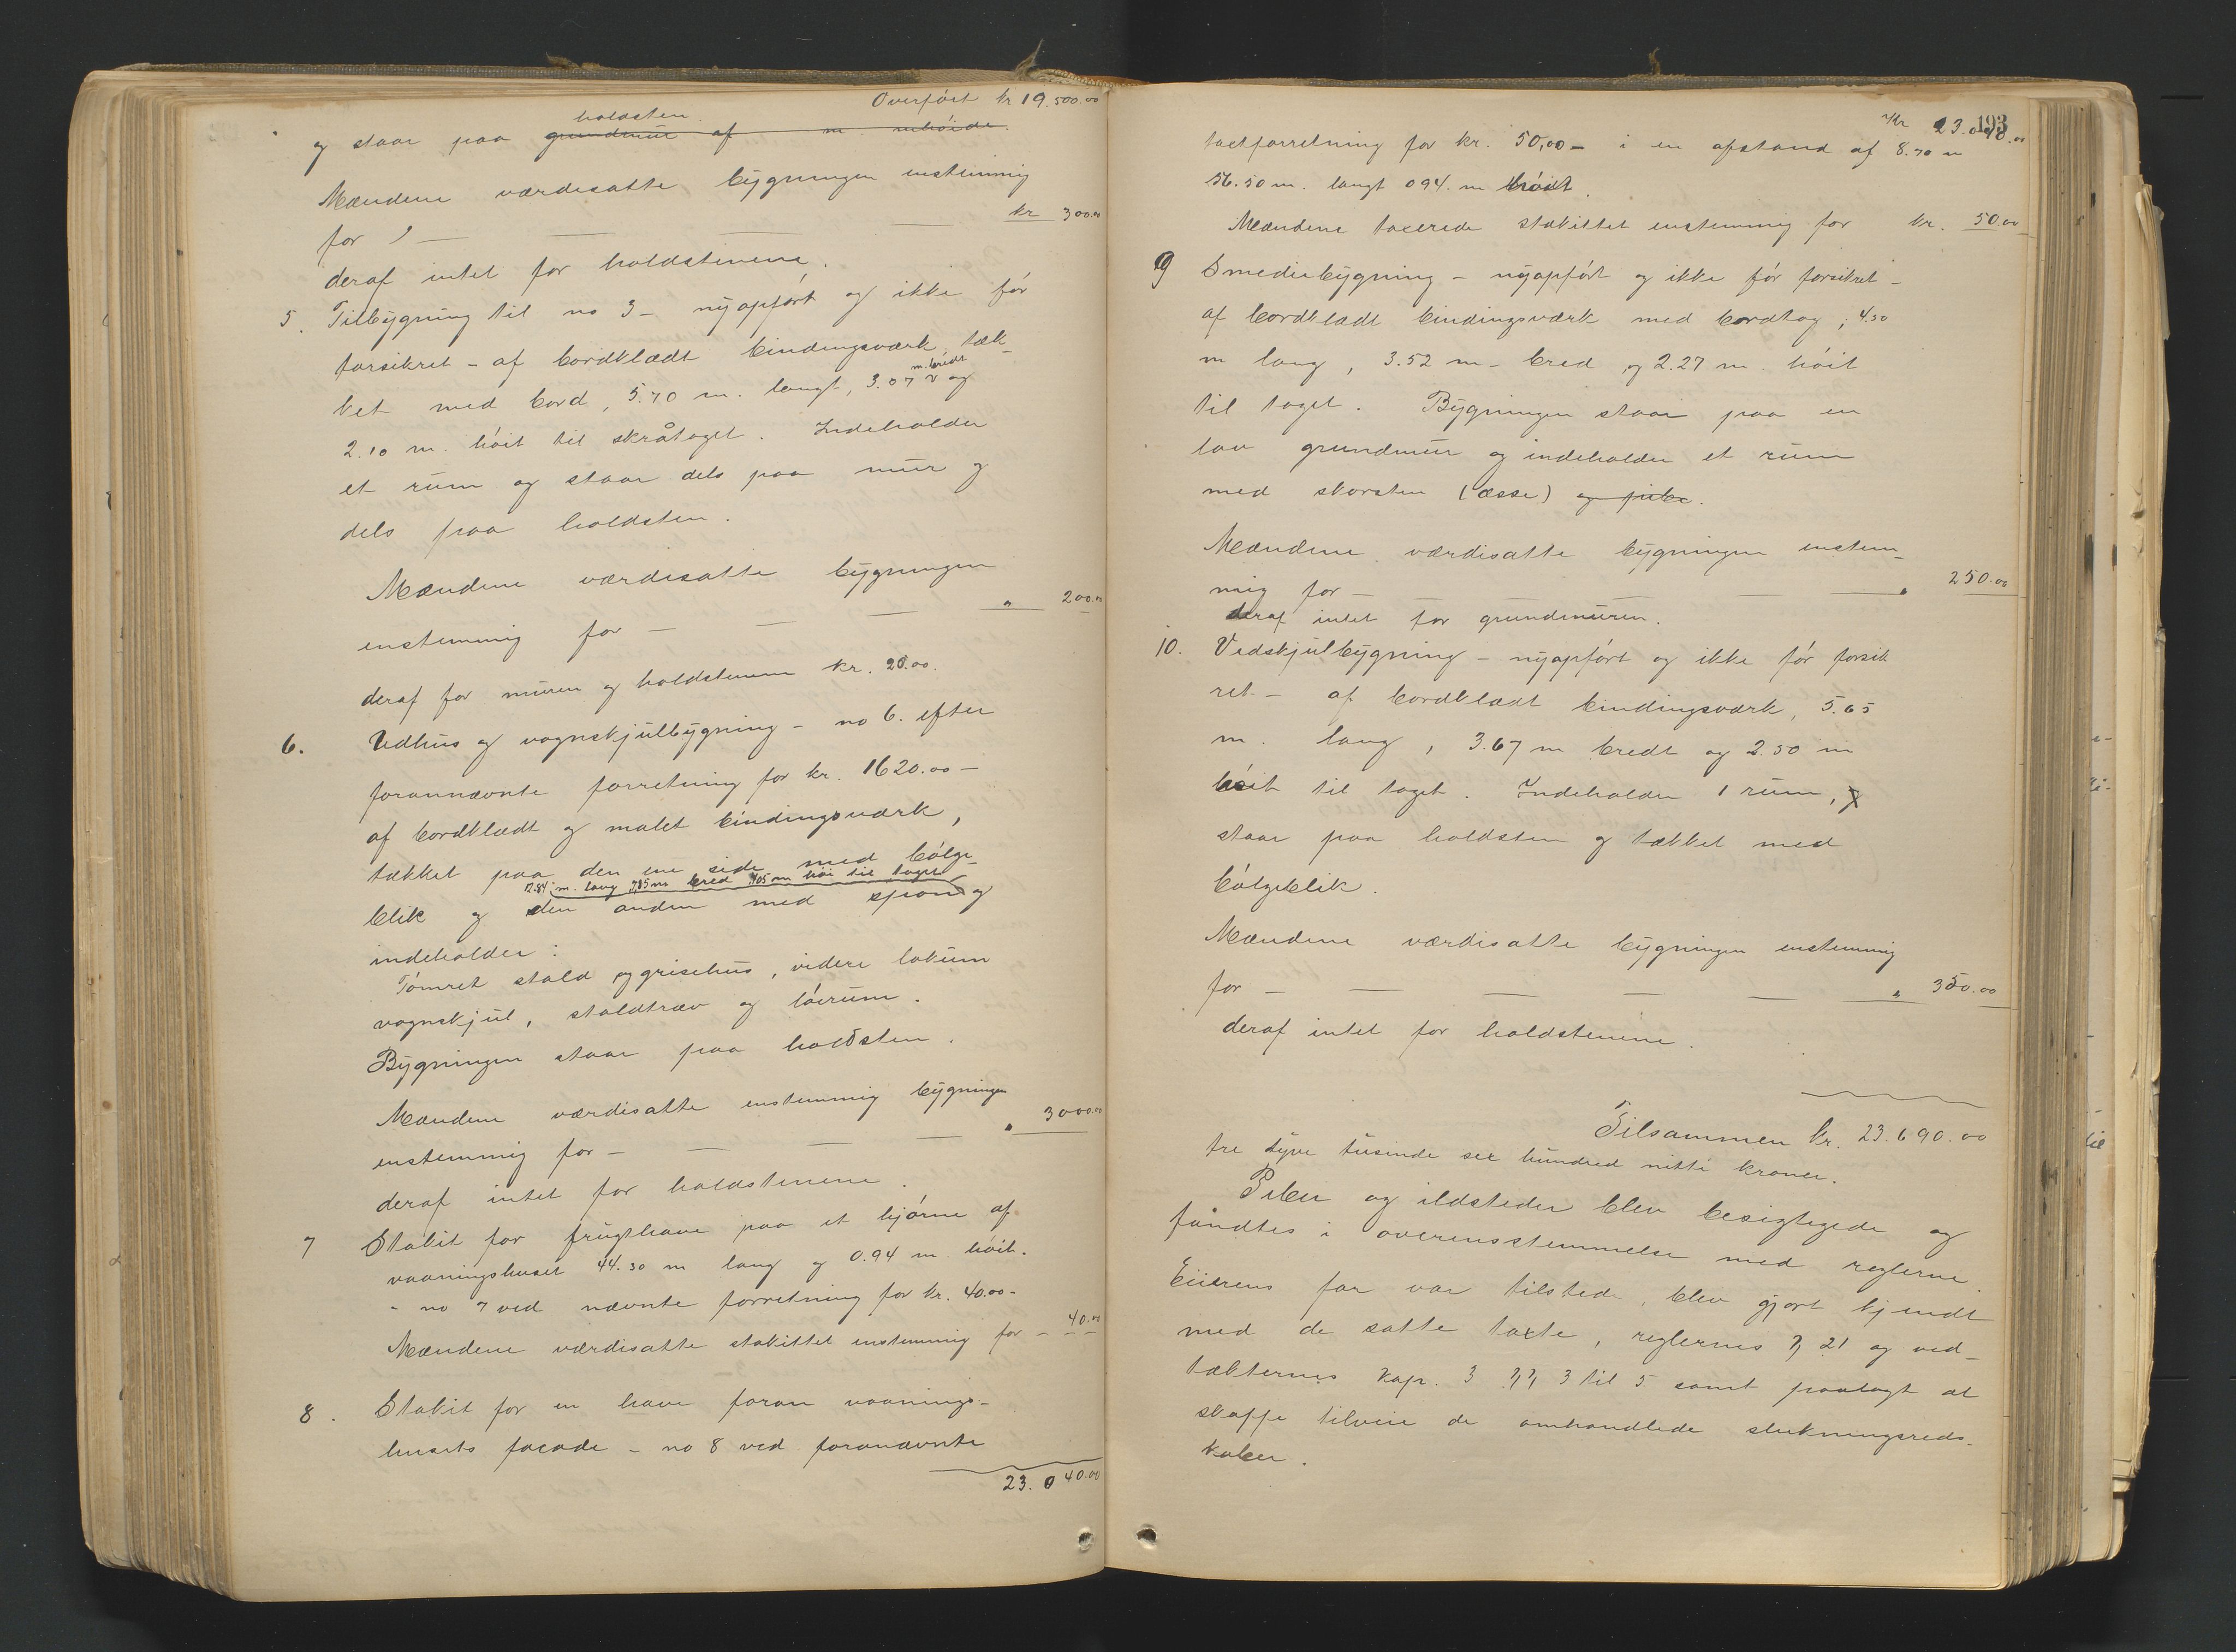 Overført kr 19.500.00
holdsten.
og staar paa grundmur af m. i høide.
Mændene værdisatte bygningen enstemmig
for — — — — kr 300.00
deraf intet for holdstenene.
5. Tilbygning til no 3 - nyopført og ikke før
forsikret - af bordklædt bindingsværk, tæk-
m. bredt
ket med bord, 5.70 m. langt, 3.07 v og
2.10 m. høit til skråtaget. Indeholder
et rum og staar dels paa mur og
dels paa holdsten.
Mændene værdisatte bygningen
enstemmig for — — — „ 200.00
deraf for muren og holdstenene kr. 20.00.
6. Vedhus og vognskjulbygning - no 6. efter
forannævnte forretning for kr. 1620.00 —
af bordklædt og malet bindingsværk,
tækket paa den ene side med bølge-
12.84 m. lang 7,85 m bred 4,05 m høi til taget
blik og den anden med spon og
indeholder:
Tømret stald og grisehus, videre lokum
vognskjul, staldtræv og løerum.
Bygningen staar paa holdsten.
Mændene værdisatte enstemmig bygningen
enstemmig for — — — — „ 3000.00
deraf intet for holdstenene.
7 Stakit for frugthave paa et hjørne af
vaaningshuset 44.30 m lang og 0.94 m. høit.
- no 7 ved nævnte forretning for kr. 40.00 -
Mændene værdisatte stakittet enstemmig for — 40.00
8. Stakit for en have foran vaanings-
husets facade - no 8 ved forannævnte
23.040.00
193
Kr 23.040.00
taxtforretning for kr. 50,00 — i en afstand af 8.70 m
56.50 m. langt 094. m høit.
Mændene taxerede stakittet enstemmig for kr. 50.00
9 Smediebygning - nyopført og ikke før forsikret -
af bordklædt bindingsværk med bordtag, 4.30
m lang, 3.52 m - bred og 2.27 m. høit
til taget. Bygningen staar paa en
lav grundmur og indeholder et rum
med skorsten (æsse) og pibe.
Mændene værdisatte bygningen enstem-
mig for — — — — „ 250.00
deraf intet for grundmuren.
10. Vedskjulbygning - nyopført og ikke før forsik
ret - af bordklædt bindingsværk, 5.65
m. lang, 3.67 m bredt og 2.50 m
høit til taget. Indeholder 1 rum, og
staar paa holdsten og tækket med
bølgeblik.
Mændene værdisatte bygningen enstemmig
for — — — — — „ 350.00
deraf intet for holdstenene.
Tilsammen kr. 23.690.00
tre tyve tusinde sex hundred nitti kroner.
Piber og ildsteder blev besigtigede og
fandtes i overensstemmelse med reglerne
Eierens far var tilstede, blev gjort kjendt
med de satte taxte, reglernes § 21 og ved-
tækternes kap. 3 §§ 3 til 5 samt paalagt at
skaffe tilveie de omhandlede slukningsreds-
kaber.